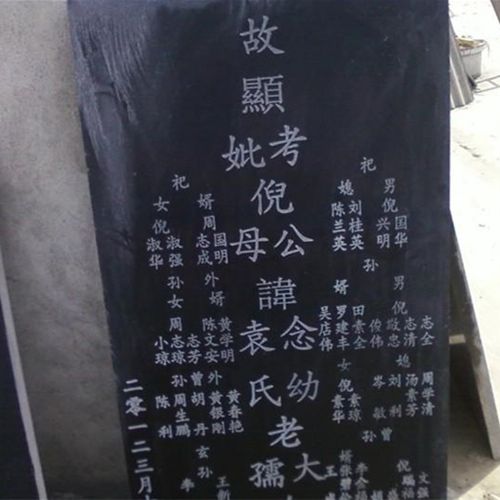 男倪国华
兴明
媳刘桂英
陈兰英
孙男倪志全
志清
敬忠
俊伟
媳周学清
汤素芳
刘利
岑敏
婿田素全
罗建丰
吴店伟
女倪素琼
素华
曾
故顯考妣倪公母諱念幼袁氏老大孺
祀
婿周国明
志成
女倪淑强
淑华
外婿黄学明
陈文安
孙女周志芳
志琼
小琼
外孙黄春艳
黄银刚
曾孙胡丹
周生鹏
陈利
玄孙
二零一二三月